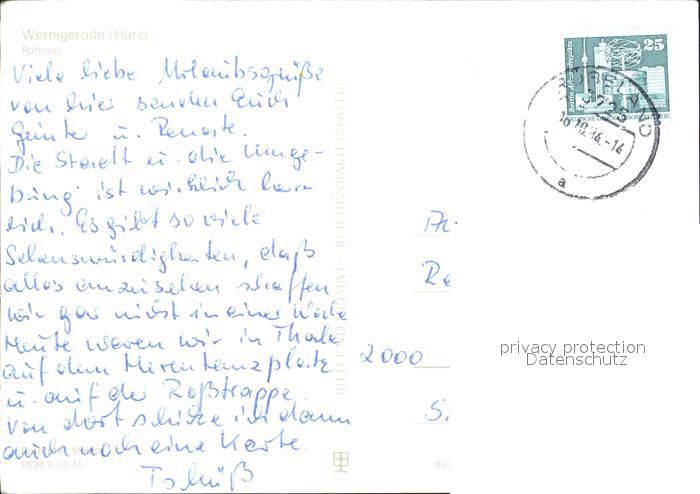 Wernigerode (Harz)
Rathaus
Viele liebe Urlaubsgrüße
von hier senden Euch
Günter u. Renate.
Die Stadt u. die Umge-
bung ist wirklich herr-
lich. Es gibt so viele
Sehenswürdigkeiten, daß
alles anzusehen schaffen
wir gar nicht in einer Woche
Heute waren wir in Thale
auf dem Hexentanzplatz
u. auf der Roßtrappe.
Von dort schicke ich dann
auch noch eine Karte.
Tschüß
DDR 0,20 M
BILD UND HEIMAT · REICHENBACH (VOGTL)
25
Berlin Alexanderplatz
RÜBELAND
16.10.84.-14
a
2000
privacy protection
Datenschutz